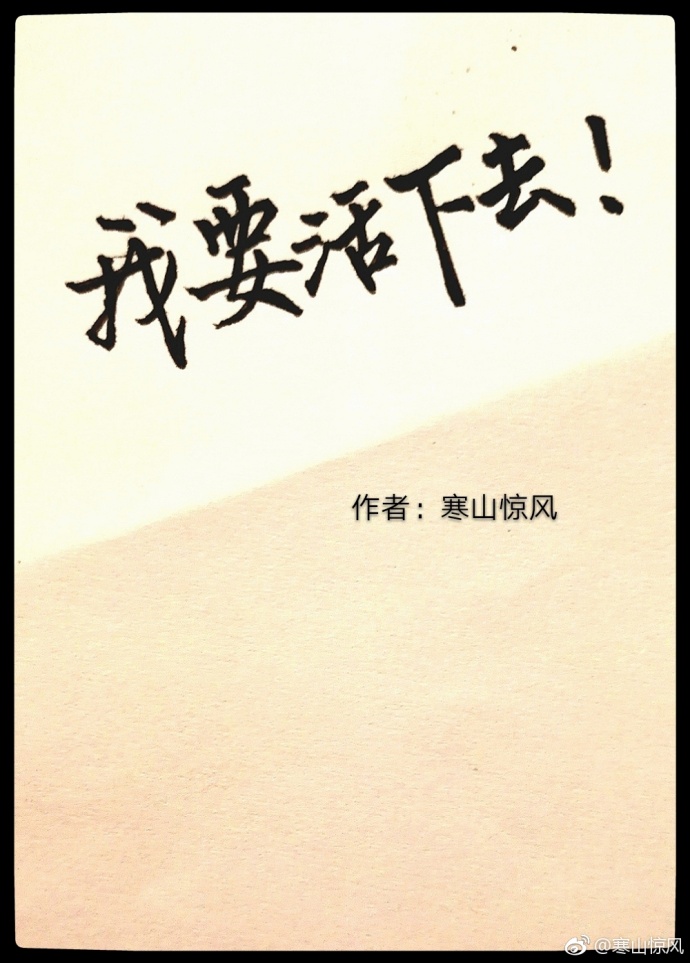 我要活下去!
作者：寒山惊风
@寒山惊风